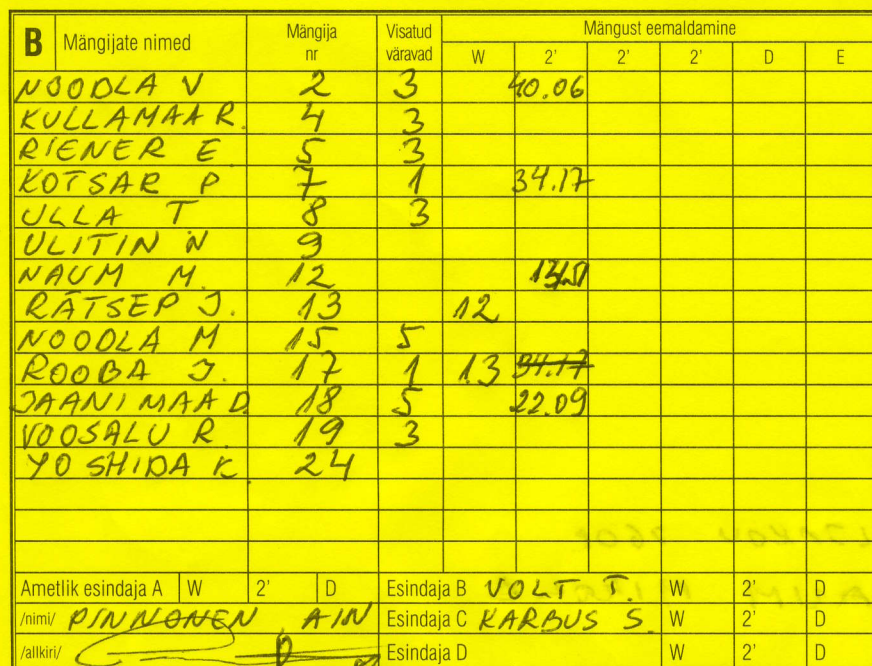 B Mängijate nimed Mängija nr Visatud väravad Mängust eemaldamine
W 2' 2' 2' D E
NOODLA V 2 3 40.06
KULLAMAA R. 4 3
RIENER E 5 3
KOTSAR P 7 1 34.17
ULLA T 8 3
ULITIN N 9
NAUM M. 12
RÄTSEP J. 13 12
NOODLA M 15 5
ROOBA J. 17 1 13 34.17
JAANIMAA D 18 5 22.09
VOOSALU R. 19 3
YOSHIDA K 24
Ametlik esindaja A W 2' D Esindaja B VOLT T. W 2' D
/nimi/ PINNONEN AIN Esindaja C KARBUS S. W 2' D
/allkiri/ Esindaja D W 2' D